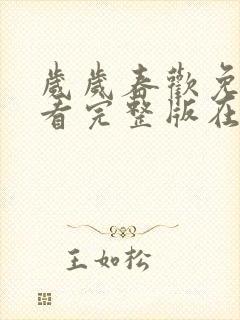 歲歲春歡免
看完整版在
王如松